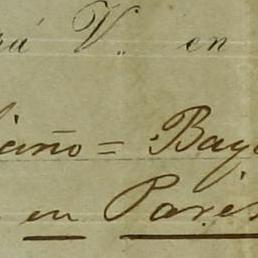 rá V. en
iaño = Bay
en Paris